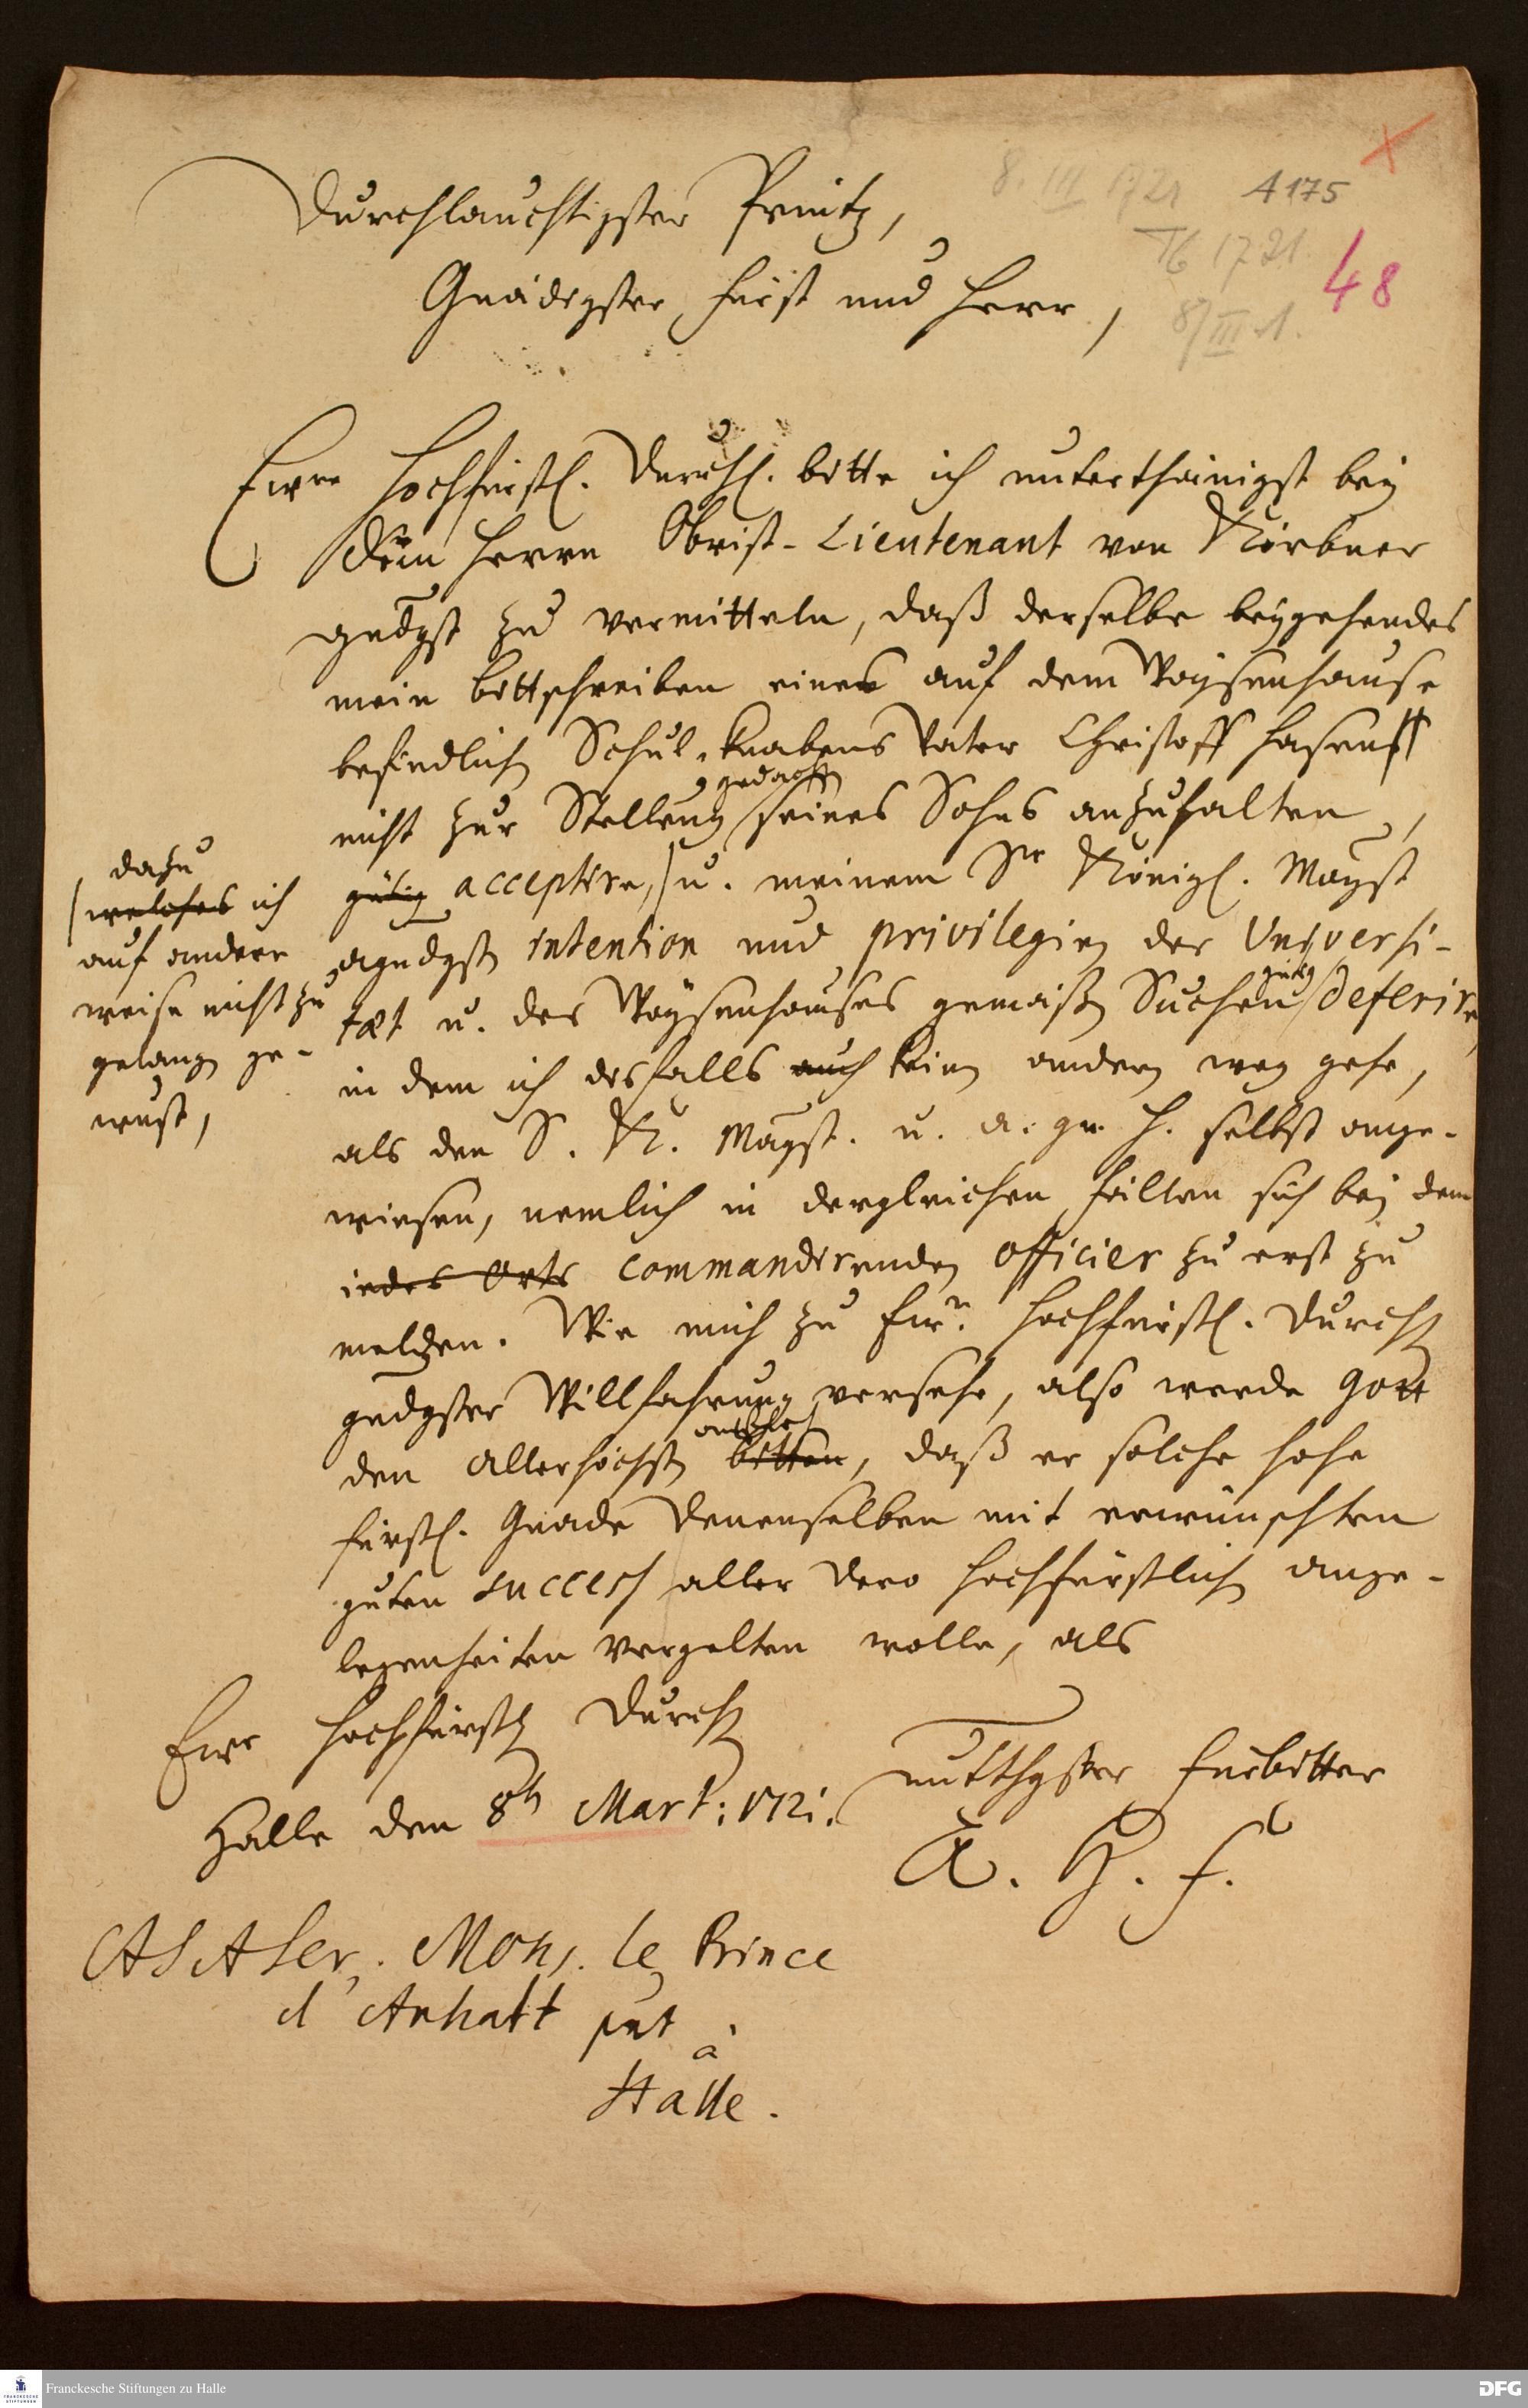 8. III 1721
A 175
Tb 1721.
48
8/III 21.
Durchlauchtigster Printz,
Gnädigster Fürst und Herr,
Ewre Hochfürstl. Durchl. bitte ich unterthänigst bey
dem Herrn Obrist-Lieutenant von Körbner
gndgst zu vermitteln, daß derselbe beygehendes
mein bittschreiben eines auf dem Waysenhause
befindlich Schul-knabens Vater Christoff Hasen
gedacht
nicht zur Stellung seines Sohns anzuhalten,
gütig acceptire, u. meinem Sr Königl. Mayst
agndgst intention und privilegien der Universi-
gütig
tæt u. des Waysenhauses gemäßen Suchen deferire,
in dem ich desfalls auch keinen andern weg gehe,
als den S. K. Mayst. u. a. gn. H. selbst ange-
wiesen, nemlich in dergleichen fällen sich bey dem
iedes Orts commandirenden Officier zu erst zu
melden. Wie mich zu Ewr. Hochfürstl. Durchl
gndgster Willfahrung versehe, also werde Gott
den Allerhöchsten bitten, daß er solche hohe
fürstl. Gnade Denenselben mit erwünschten
guten success aller Dero Hochfürstlich ange-
legenheiten vergelten wolle, als
dazu
welches ich
auf andere
weise nicht zu
gelangen ge-
wust,
Ewr Hochfürstl Durchl
untthgster Fürbitter
Halle den 8ten Mart: 1721.
A. H. F.
A S A Ser. Mons. le Prince
d'Anhalt pnt
à
Halle.
Franckesche Stiftungen zu Halle
DFG